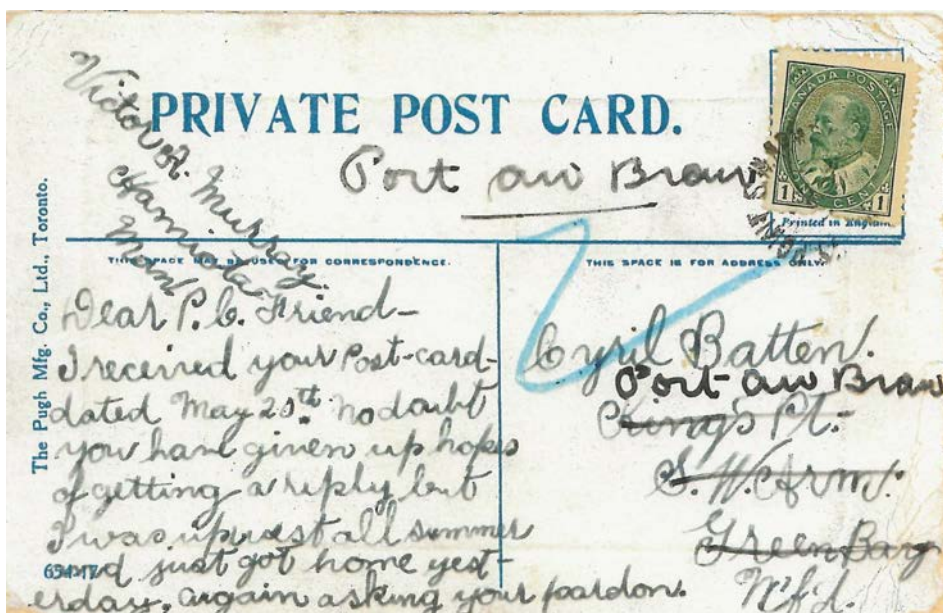 Victor A. Murray.
Hamiota
Man
PRIVATE POST CARD.
Port au Bra
CANADA POSTAGE
1 ONE CENT 1
Printed in England
THIS SPACE MAY BE USED FOR CORRESPONDENCE.
THIS SPACE IS FOR ADDRESS ONLY.
The Pugh Mfg. Co., Ltd., Toronto.
Dear P.C. Friend-
I received your Post-card-
dated May 20th. No doubt
you have given up hopes
of getting a reply but
I was up west all summer
and just got home yest-
erday, again asking your pardon.
Cyril Batten.
Port au Bra
King's Pt.
S. W. Arm.
Green Bay
Nfld.